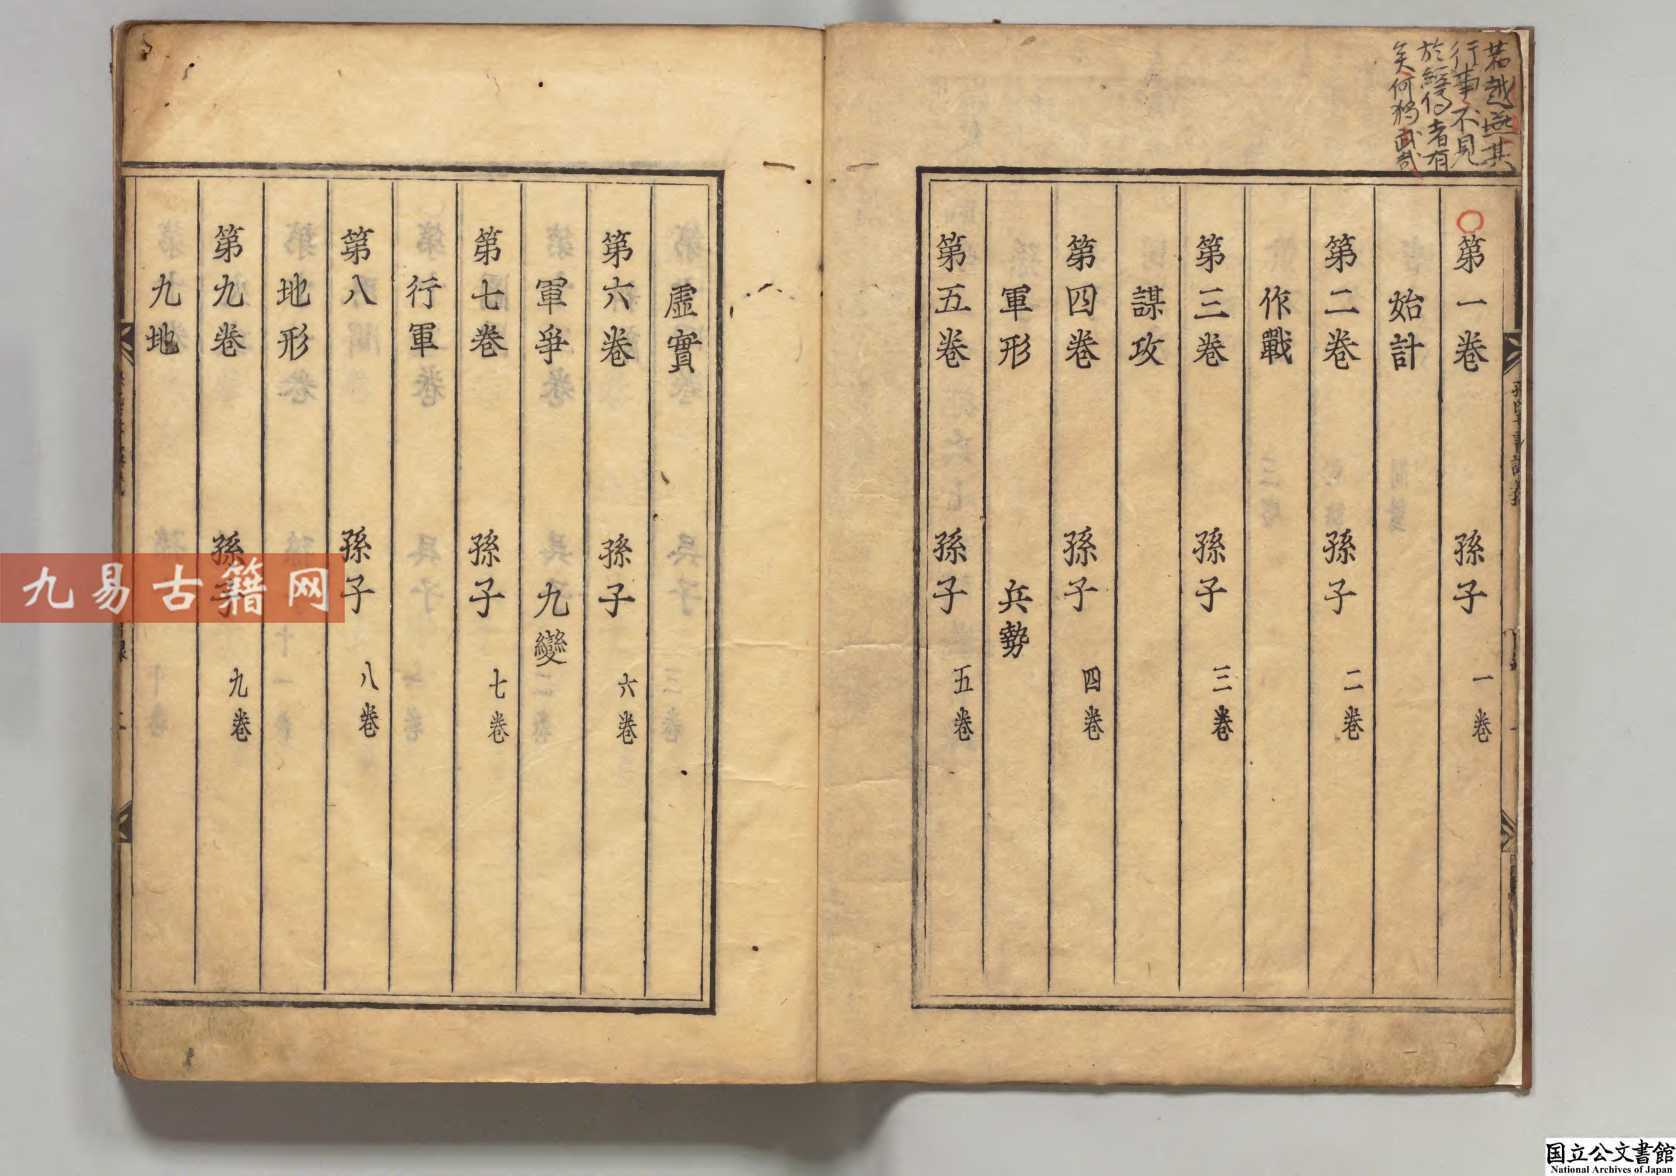 若越燕其
行事不見
於經傳者有
矣何
第一卷 孫子 一卷
始計
第二卷 孫子 二卷
作戰
第三卷 孫子 三卷
謀攻
第四卷 孫子 四卷
軍形 兵勢
第五卷 孫子 五卷
虛實
第六卷 孫子 六卷
軍爭 九變
第七卷 孫子 七卷
行軍
第八 孫子 八卷
地形
第九卷 孫子 九卷
九地
九易古籍网
国立公文書館
National Archives of Japan